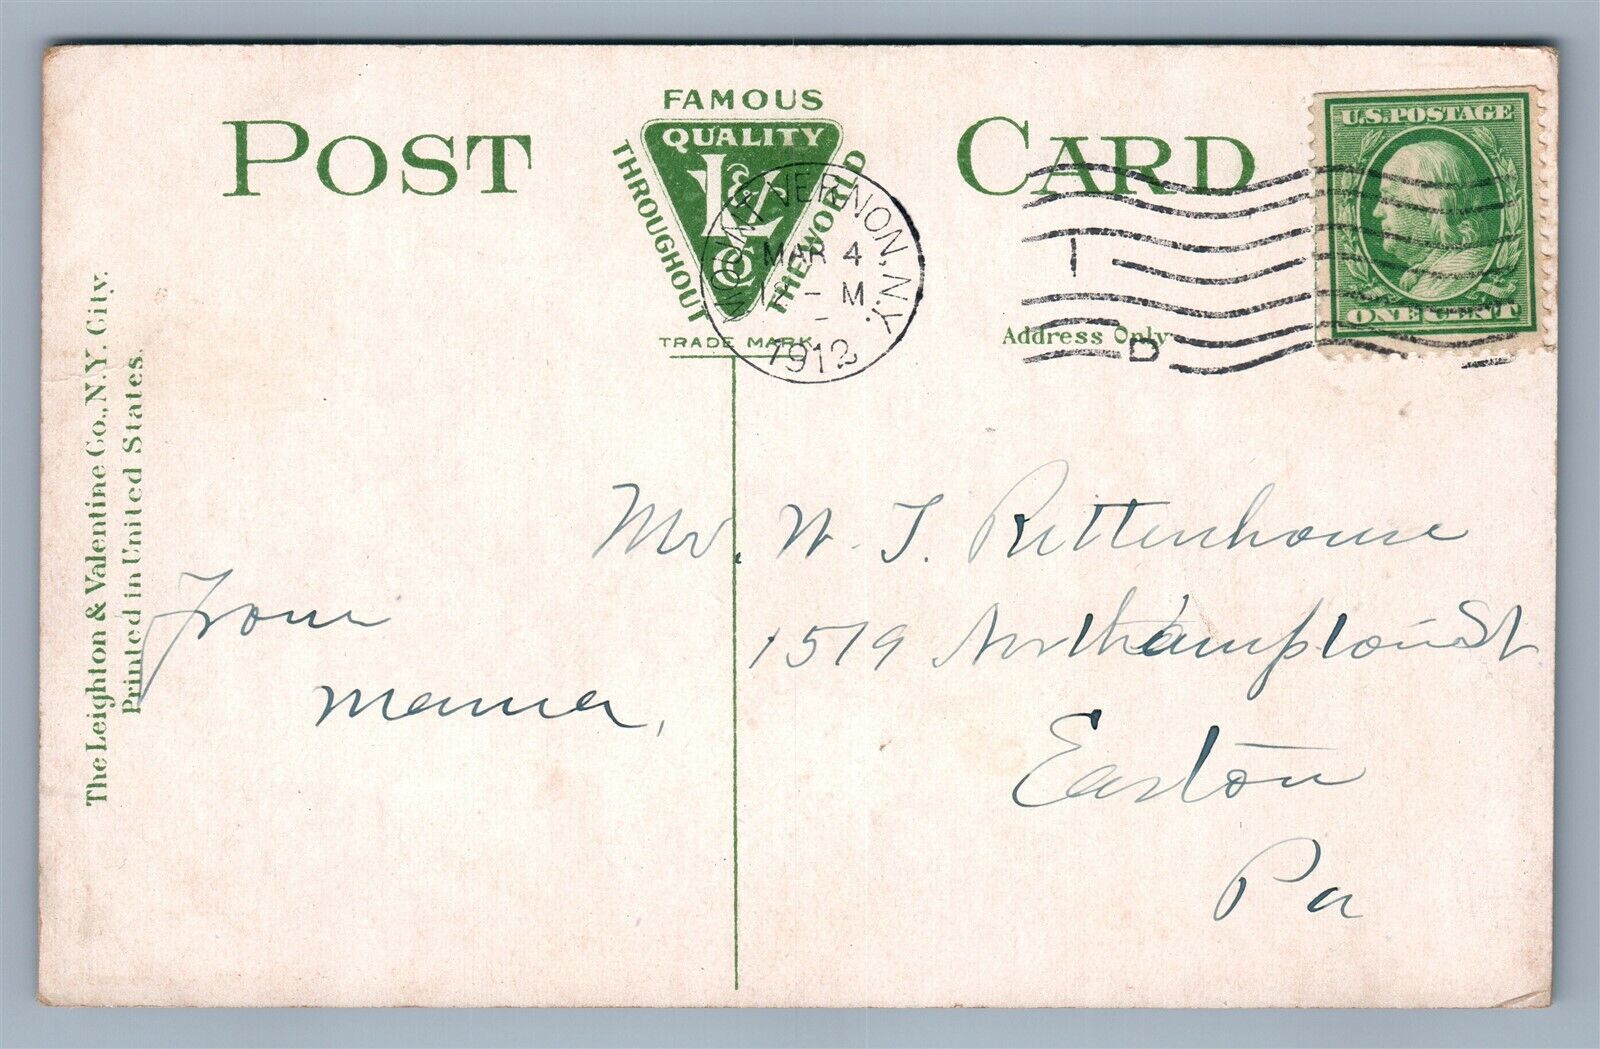 POST CARD
FAMOUS
QUALITY
L&V Co
THROUGHOUT
THE WORLD
TRADE MARK
MOUNT VERNON, N.Y.
MAR 4
M
1912
1
D
U.S. POSTAGE
ONE CENT
Address Only
The Leighton & Valentine Co., N.Y. City.
Printed in United States.
From
Mama,
Mr. W. J. Rittenhouse
1519 Northampton St
Easton
Pa